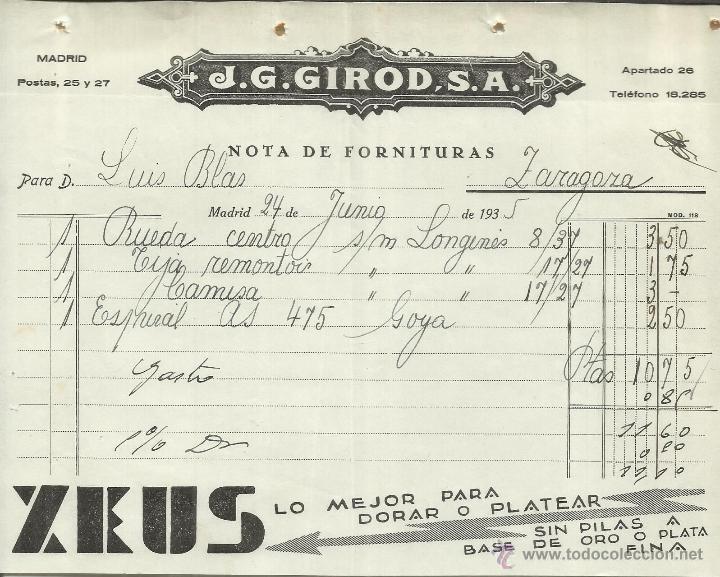 MADRID
Postas, 25 y 27
J. G. GIROD, S. A.
Apartado 26
Teléfono 18.285
NOTA DE FORNITURAS
Para D. Luis Blas Zaragoza
Madrid 24 de Junio de 1935
MOD. 118
1 Rueda centro s/m Longines 8/37 3 50
1 Tija remontoir " " 17/27 1 75
1 Camisa " " 17/27 3 -
1 Espiral AS 475 Goya 2 50
Ptas 10 75
Gasto
11 60
ZEUS
LO MEJOR PARA
DORAR O PLATEAR
SIN PILAS A
BASE DE ORO O PLATA
FINA
© todocoleccion.net